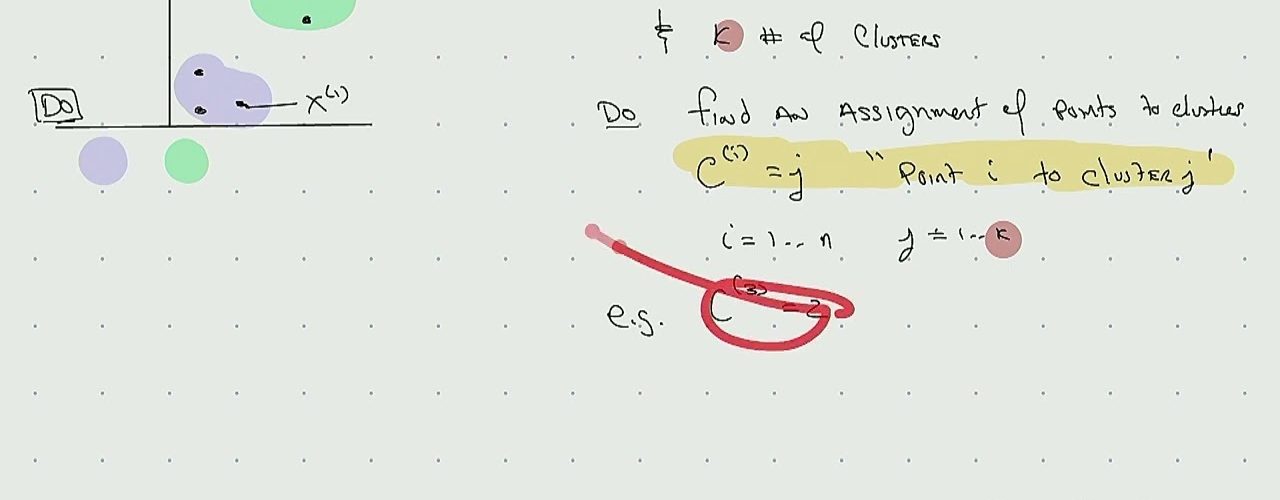 & K # of Clusters
Do
X^(1)
Do find an Assignment of points to clusters
C^(i) = j "Point i to cluster j'
i = 1... n j = 1... K
e.g. C^(3) = 2